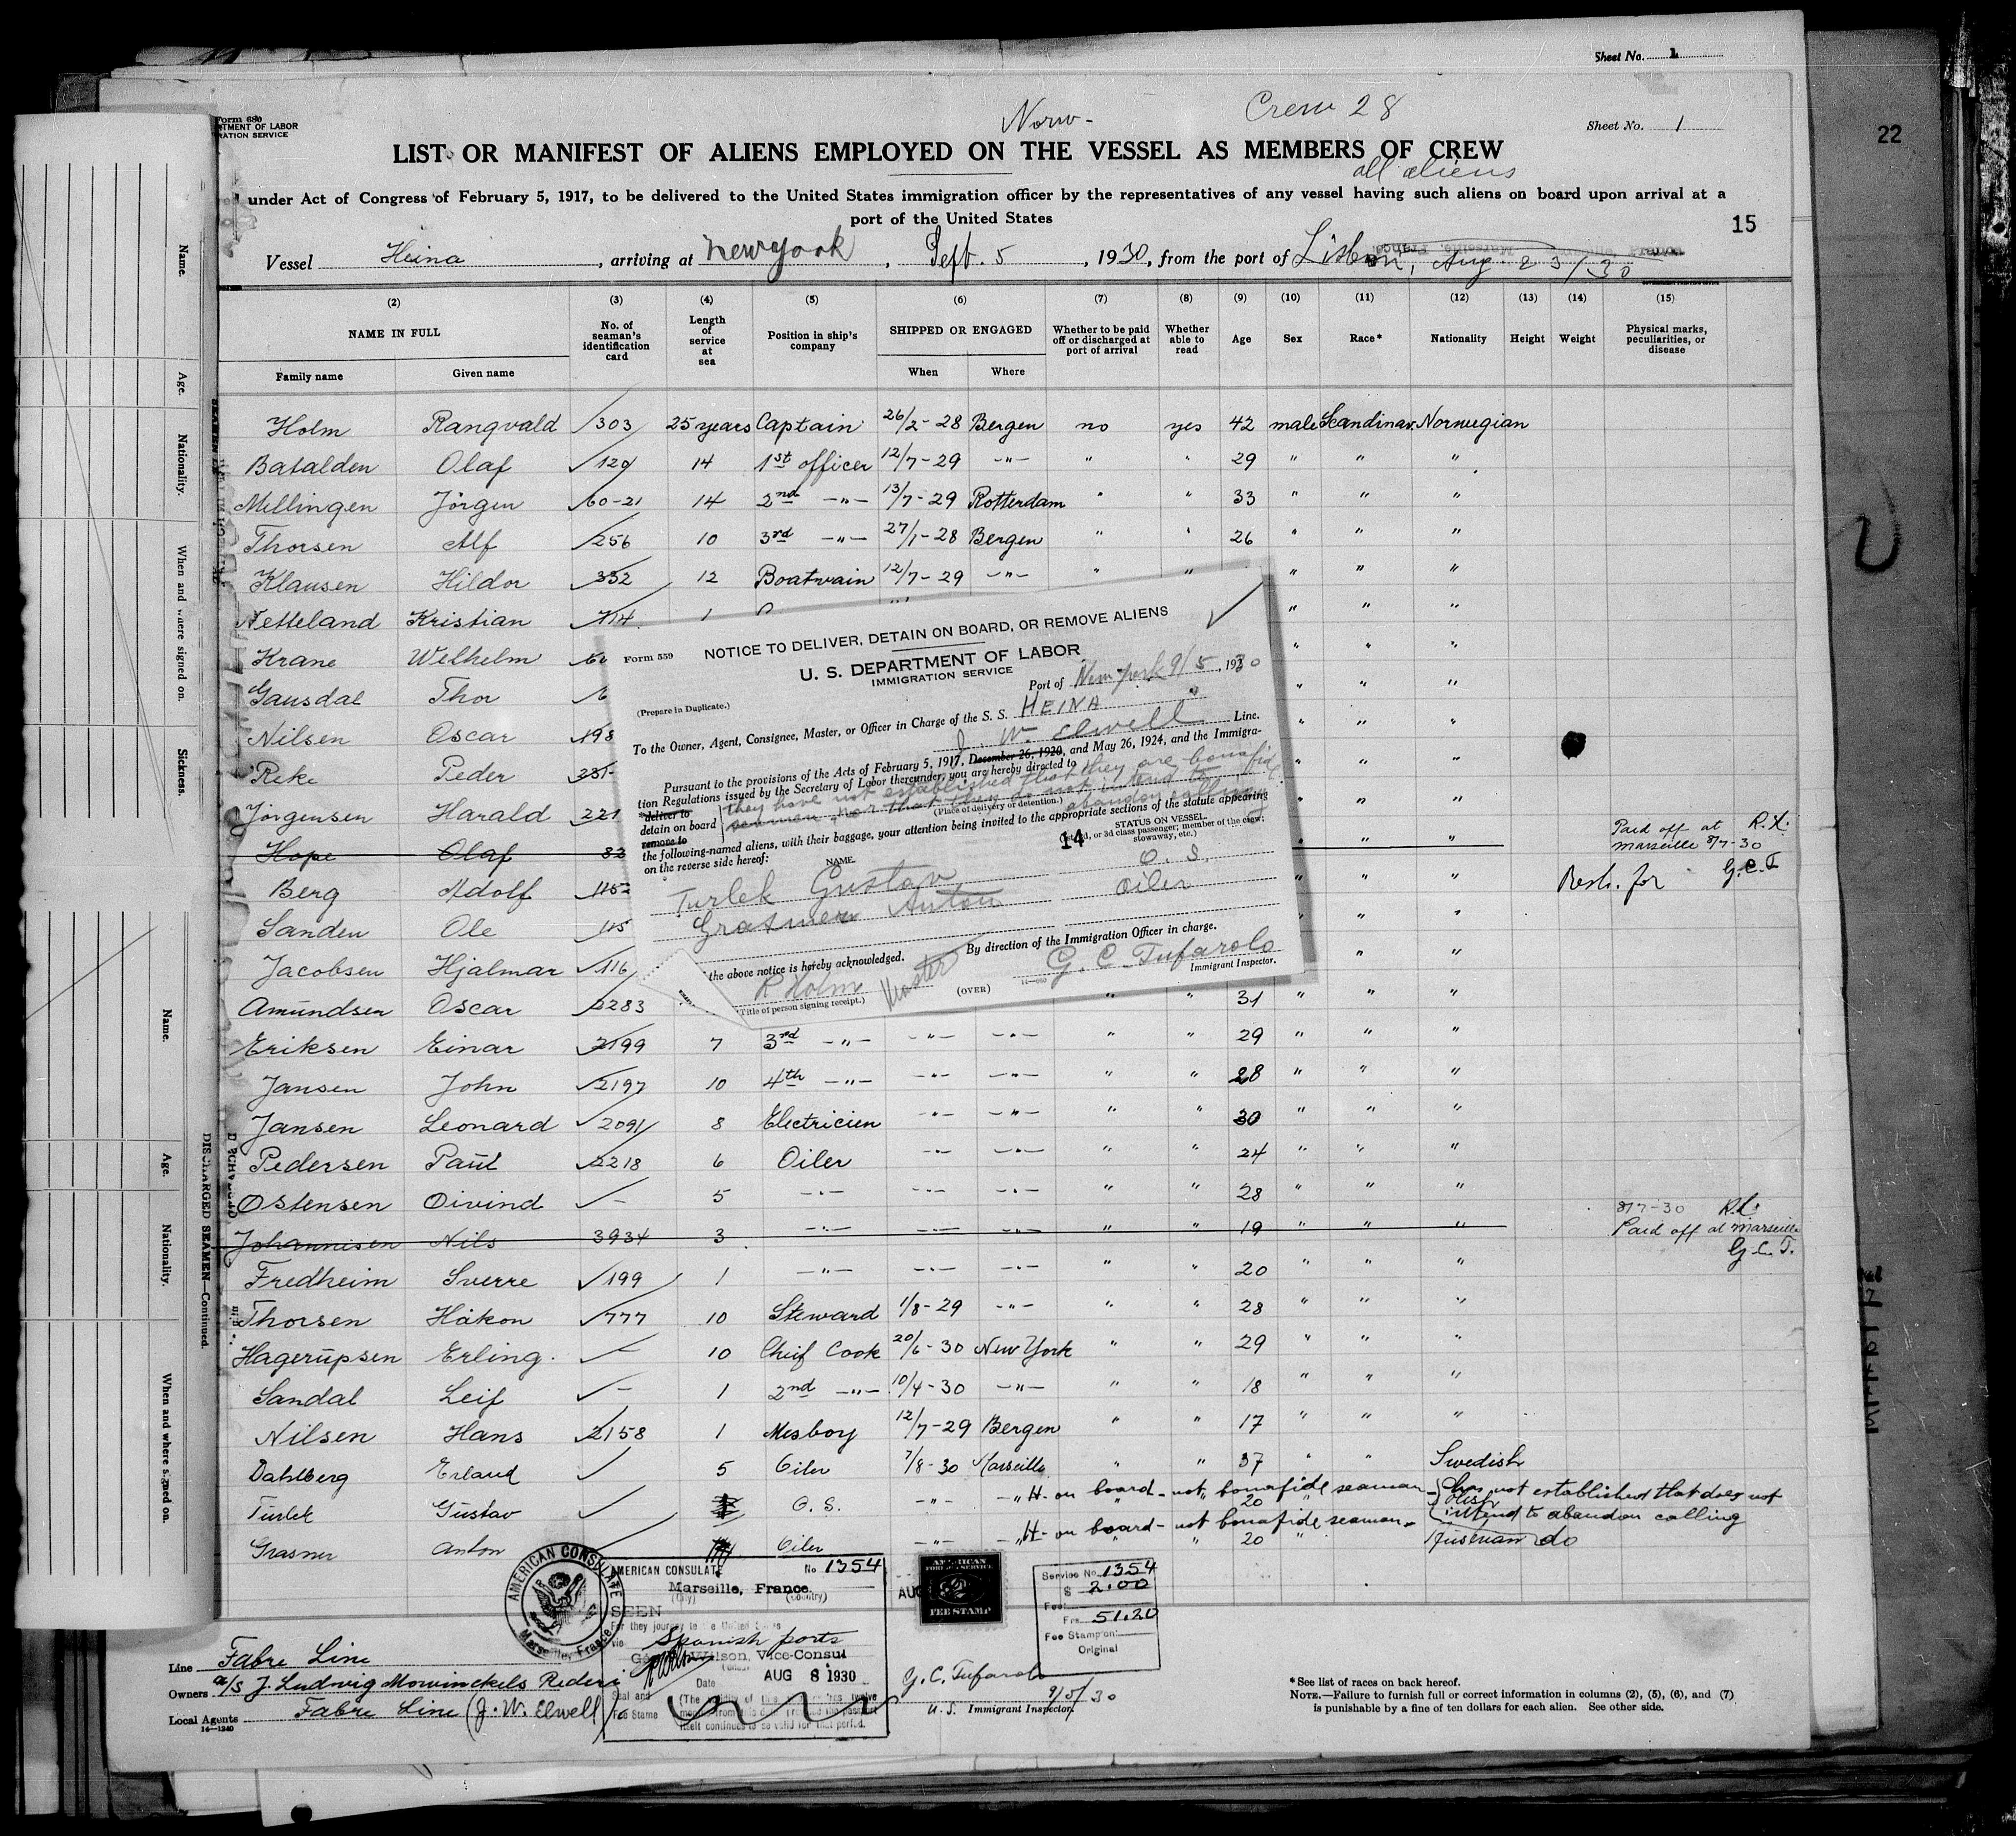 Sheet No. 1
22
Form 680
TMENT OF LABOR
RATION SERVICE
Norw-
Crew 28
Sheet No. 1
LIST OR MANIFEST OF ALIENS EMPLOYED ON THE VESSEL AS MEMBERS OF CREW
all aliens
under Act of Congress of February 5, 1917, to be delivered to the United States immigration officer by the representatives of any vessel having such aliens on board upon arrival at a
port of the United States
15
Vessel Heina, arriving at New York, Sept. 5, 1930, from the port of Lisbon, Aug. 23/30
(2) (3) (4) (5) (6) (7) (8) (9) (10) (11) (12) (13) (14) (15)
NAME IN FULL No. of seaman's identification card Length of service at sea Position in ship's company SHIPPED OR ENGAGED Whether to be paid off or discharged at port of arrival Whether able to read Age Sex Race* Nationality Height Weight Physical marks, peculiarities, or disease
Family name Given name When Where
Holm Rangvald 303 25 years Captain 26/2-28 Bergen no yes 42 male Scandinav. Norwegian
Batalden Olaf 129 14 1st officer 12/7-29 -"- " " 29 " " "
Mellingen Jörgen 60-21 14 2nd -"- 13/7-29 Rotterdam " " 33 " " "
Thorsen Alf 256 10 3rd -"- 27/1-28 Bergen " " 26 " " "
Klausen Hildor 332 12 Boatwain 12/7-29 -"- " " " " "
Netteland Kristian 714 1 " " "
Krane Welhelm " " "
Gausdal Thor " " "
Nilsen Oscar 198 " " "
Reke Peder 231 " " "
Jörgensen Harald 221 " " "
Hope Olaf 83 " " " Paid off at Marseille 8/7-30 R.H.
Berg Adolf 115 " " " G.C.T
Sanden Ole 115 " " "
Jacobsen Hjalmar 116 " "
Amundsen Oscar 2283 " " 31 " " "
Eriksen Einar 2199 7 3rd -"- -"- -"- " " 29 " " "
Jansen John 2197 10 4th -"- -"- -"- " " 28 " " "
Jansen Leonard 2091 8 Electricien -"- -"- " " 30 " " "
Pedersen Paul 2218 6 Oiler -"- -"- " " 24 " " "
Ostensen Oivind - 5 -"- -"- -"- " " 28 " " "
Johannisen Nils 3934 3 -"- -"- -"- " " 19 " " " 8/7-30 Paid off at Marseille G.C.T.
Fredheim Sverre 199 1 -"- -"- -"- " " 20 " " "
Thorsen Håkon 777 10 Steward 1/8-29 -"- " " 28 " " "
Hagerupsen Erling - 10 Chief Cook 20/6-30 New York " " 29 " " "
Sandal Leif - 1 2nd -"- 10/4-30 -"- " " 18 " " "
Nilsen Hans 2158 1 Mesboy 12/7-29 Bergen " " 17 " " "
Dahlberg Erland 5 Oiler 7/8-30 Marseille " " 37 " " Swedish
Turlek Gustav O.S. -"- -"- H- on board - not bonafide seaman - has not established that does not
20 intend to abandon calling
Grasner Anton Oiler -"- -"- H- on board - not bonafide seaman -
20 do
Form 559
NOTICE TO DELIVER, DETAIN ON BOARD, OR REMOVE ALIENS
U. S. DEPARTMENT OF LABOR
IMMIGRATION SERVICE
(Prepare in Duplicate.)
Port of New York 9/5, 1930
To the Owner, Agent, Consignee, Master, or Officer in Charge of the S. S. HEINA
J. W. Elwell Line.
Pursuant to the provisions of the Acts of February 5, 1917, December 26, 1920, and May 26, 1924, and the Immigra-
tion Regulations issued by the Secretary of Labor thereunder, you are hereby directed to
*deliver to
detain on board
remove to
they have not established that they are bonafide
seamen nor that they do not intend to
abandon calling
(Place of delivery or detention.)
the following-named aliens, with their baggage, your attention being invited to the appropriate sections of the statute appearing
on the reverse side hereof:
NAME.
14
STATUS ON VESSEL
, or 3d class passenger; member of the crew;
stowaway, etc.)
Turlek Gustav O. S.
Grasner Anton Oiler
the above notice is hereby acknowledged.
By direction of the Immigration Officer in charge.
R Holm Master
(Title of person signing receipt.)
(OVER)
G. C. Tufarolo
Immigrant Inspector.
AMERICAN CONSULATE
Marseille, France
AMERICAN CONSULATE No 1354
Marseille, France
(City) (Country)
SEEN
For the journey to the United States
via Spanish ports
Wilson, Vice-Consul
Date AUG 8 1930
AUG
AMERICAN
FOREIGN SERVICE
2
FEE STAMP
Service No. 1354
$ 2.00
Fee
Frs. 51.20
Fee Stamp on
Original
Line Fabre Line
Owners a/s J. Ludwig Mowinckels Rederi
Local Agents Fabre Line (J. W. Elwell)
14-1240
G. C. Tufarolo
9/5/30
U. S. Immigrant Inspector.
*See list of races on back hereof.
NOTE.—Failure to furnish full or correct information in columns (2), (5), (6), and (7)
is punishable by a fine of ten dollars for each alien. See other side.
Name.
Age.
Nationality.
When and where signed on.
Sickness.
Name.
Age.
Nationality.
When and where signed on.
DISCHARGED SEAMEN—Continued.